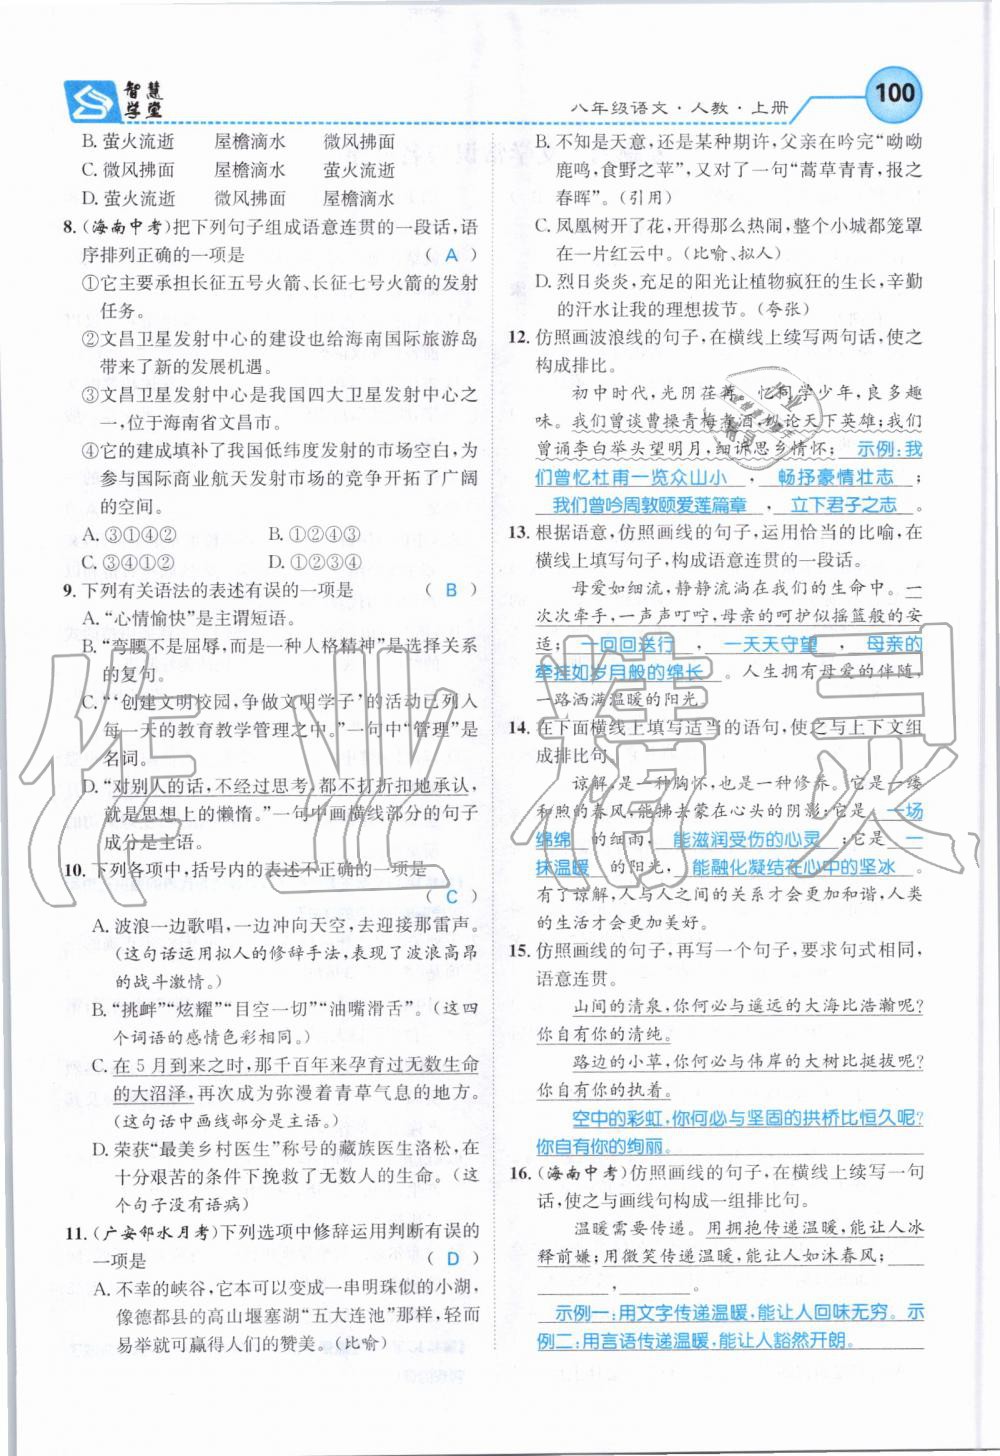 智慧学堂
八年级语文·人教·上册
100
B. 萤火流逝 屋檐滴水 微风拂面
C. 微风拂面 屋檐滴水 萤火流逝
D. 萤火流逝 微风拂面 屋檐滴水
8. (海南中考)把下列句子组成语意连贯的一段话,语
序排列正确的一项是 ( A )
①它主要承担长征五号火箭、长征七号火箭的发射
任务。
②文昌卫星发射中心的建设也给海南国际旅游岛
带来了新的发展机遇。
③文昌卫星发射中心是我国四大卫星发射中心之
一,位于海南省文昌市。
④它的建成填补了我国低纬度发射的市场空白,为
参与国际商业航天发射市场的竞争开拓了广阔
的空间。
A. ③①④② B. ①②④③
C. ③④①② D. ①②③④
9. 下列有关语法的表述有误的一项是 ( B )
A. “心情愉快”是主谓短语。
B. “弯腰不是屈辱,而是一种人格精神”是选择关系
的复句。
C. “‘创建文明校园,争做文明学子’的活动已列入
每一天的教育教学管理之中。”一句中“管理”是
名词。
D. “对别人的话,不经过思考,都不打折扣地承认,
就是思想上的懒惰。”一句中画横线部分的句子
成分是主语。
10. 下列各项中,括号内的表述不正确的一项是
( C )
A. 波浪一边歌唱,一边冲向天空,去迎接那雷声。
(这句话运用拟人的修辞手法,表现了波浪高昂
的战斗激情。)
B. “挑衅”“炫耀”“目空一切”“油嘴滑舌”。(这四
个词语的感情色彩相同。)
C. 在5月到来之时,那千百年来孕育过无数生命
的大沼泽,再次成为弥漫着青草气息的地方。
(这句话中画线部分是主语。)
D. 荣获“最美乡村医生”称号的藏族医生洛松,在
十分艰苦的条件下挽救了无数人的生命。(这
个句子没有语病)
11. (广安邻水月考)下列选项中修辞运用判断有误的
一项是 ( D )
A. 不幸的峡谷,它本可以变成一串明珠似的小湖,
像德都县的高山堰塞湖“五大连池”那样,轻而
易举就可赢得人们的赞美。(比喻)
B. 不知是天意,还是某种期许,父亲在吟完“呦呦
鹿鸣,食野之苹”,又对了一句“蒿草青青,报之
春晖”。(引用)
C. 凤凰树开了花,开得那么热闹,整个小城都笼罩
在一片红云中。(比喻、拟人)
D. 烈日炎炎,充足的阳光让植物疯狂的生长,辛勤
的汗水让我的理想拔节。(夸张)
12. 仿照画波浪线的句子,在横线上续写两句话,使之
构成排比。
初中时代,光阴荏苒,忆同学少年,良多趣
味。我们曾谈曹操青梅煮酒,纵论天下英雄;我们
曾诵李白举头望明月,细诉思乡情怀; 示例:我
们曾忆杜甫一览众山小 , 畅抒豪情壮志 ;
我们曾吟周敦颐爱莲篇章 , 立下君子之志 。
13. 根据语意,仿照画线的句子,运用恰当的比喻,在
横线上填写句子,构成语意连贯的一段话。
母爱如细流,静静流淌在我们的生命中。一
次次牵手,一声声叮咛,母亲的呵护似摇篮般的安
适; 一回回送行 , 一天天守望 , 母亲的
牵挂如岁月般的绵长 。人生拥有母爱的伴随,
一路洒满温暖的阳光。
14. 在下面横线上填写适当的语句,使之与上下文组
成排比句。
谅解,是一种胸怀,也是一种修养。它是一缕
和煦的春风,能拂去蒙在心头的阴影;它是 一场
绵绵 的细雨, 能滋润受伤的心灵 ;它是 一
抹温暖 的阳光, 能融化凝结在心中的坚冰 。
有了谅解,人与人之间的关系才会更加和谐,人类
的生活才会更加美好。
15. 仿照画线的句子,再写一个句子,要求句式相同,
语意连贯。
山间的清泉,你何必与遥远的大海比浩瀚呢?
你自有你的清纯。
路边的小草,你何必与伟岸的大树比挺拔呢?
你自有你的执着。
空中的彩虹,你何必与坚固的拱桥比恒久呢?
你自有你的绚丽。
16. (海南中考)仿照画线的句子,在横线上续写一句
话,使之与画线句构成一组排比句。
温暖需要传递。用拥抱传递温暖,能让人冰
释前嫌;用微笑传递温暖,能让人如沐春风;
, 。
示例一:用文字传递温暖,能让人回味无穷。示
例二:用言语传递温暖,能让人豁然开朗。
作业精灵